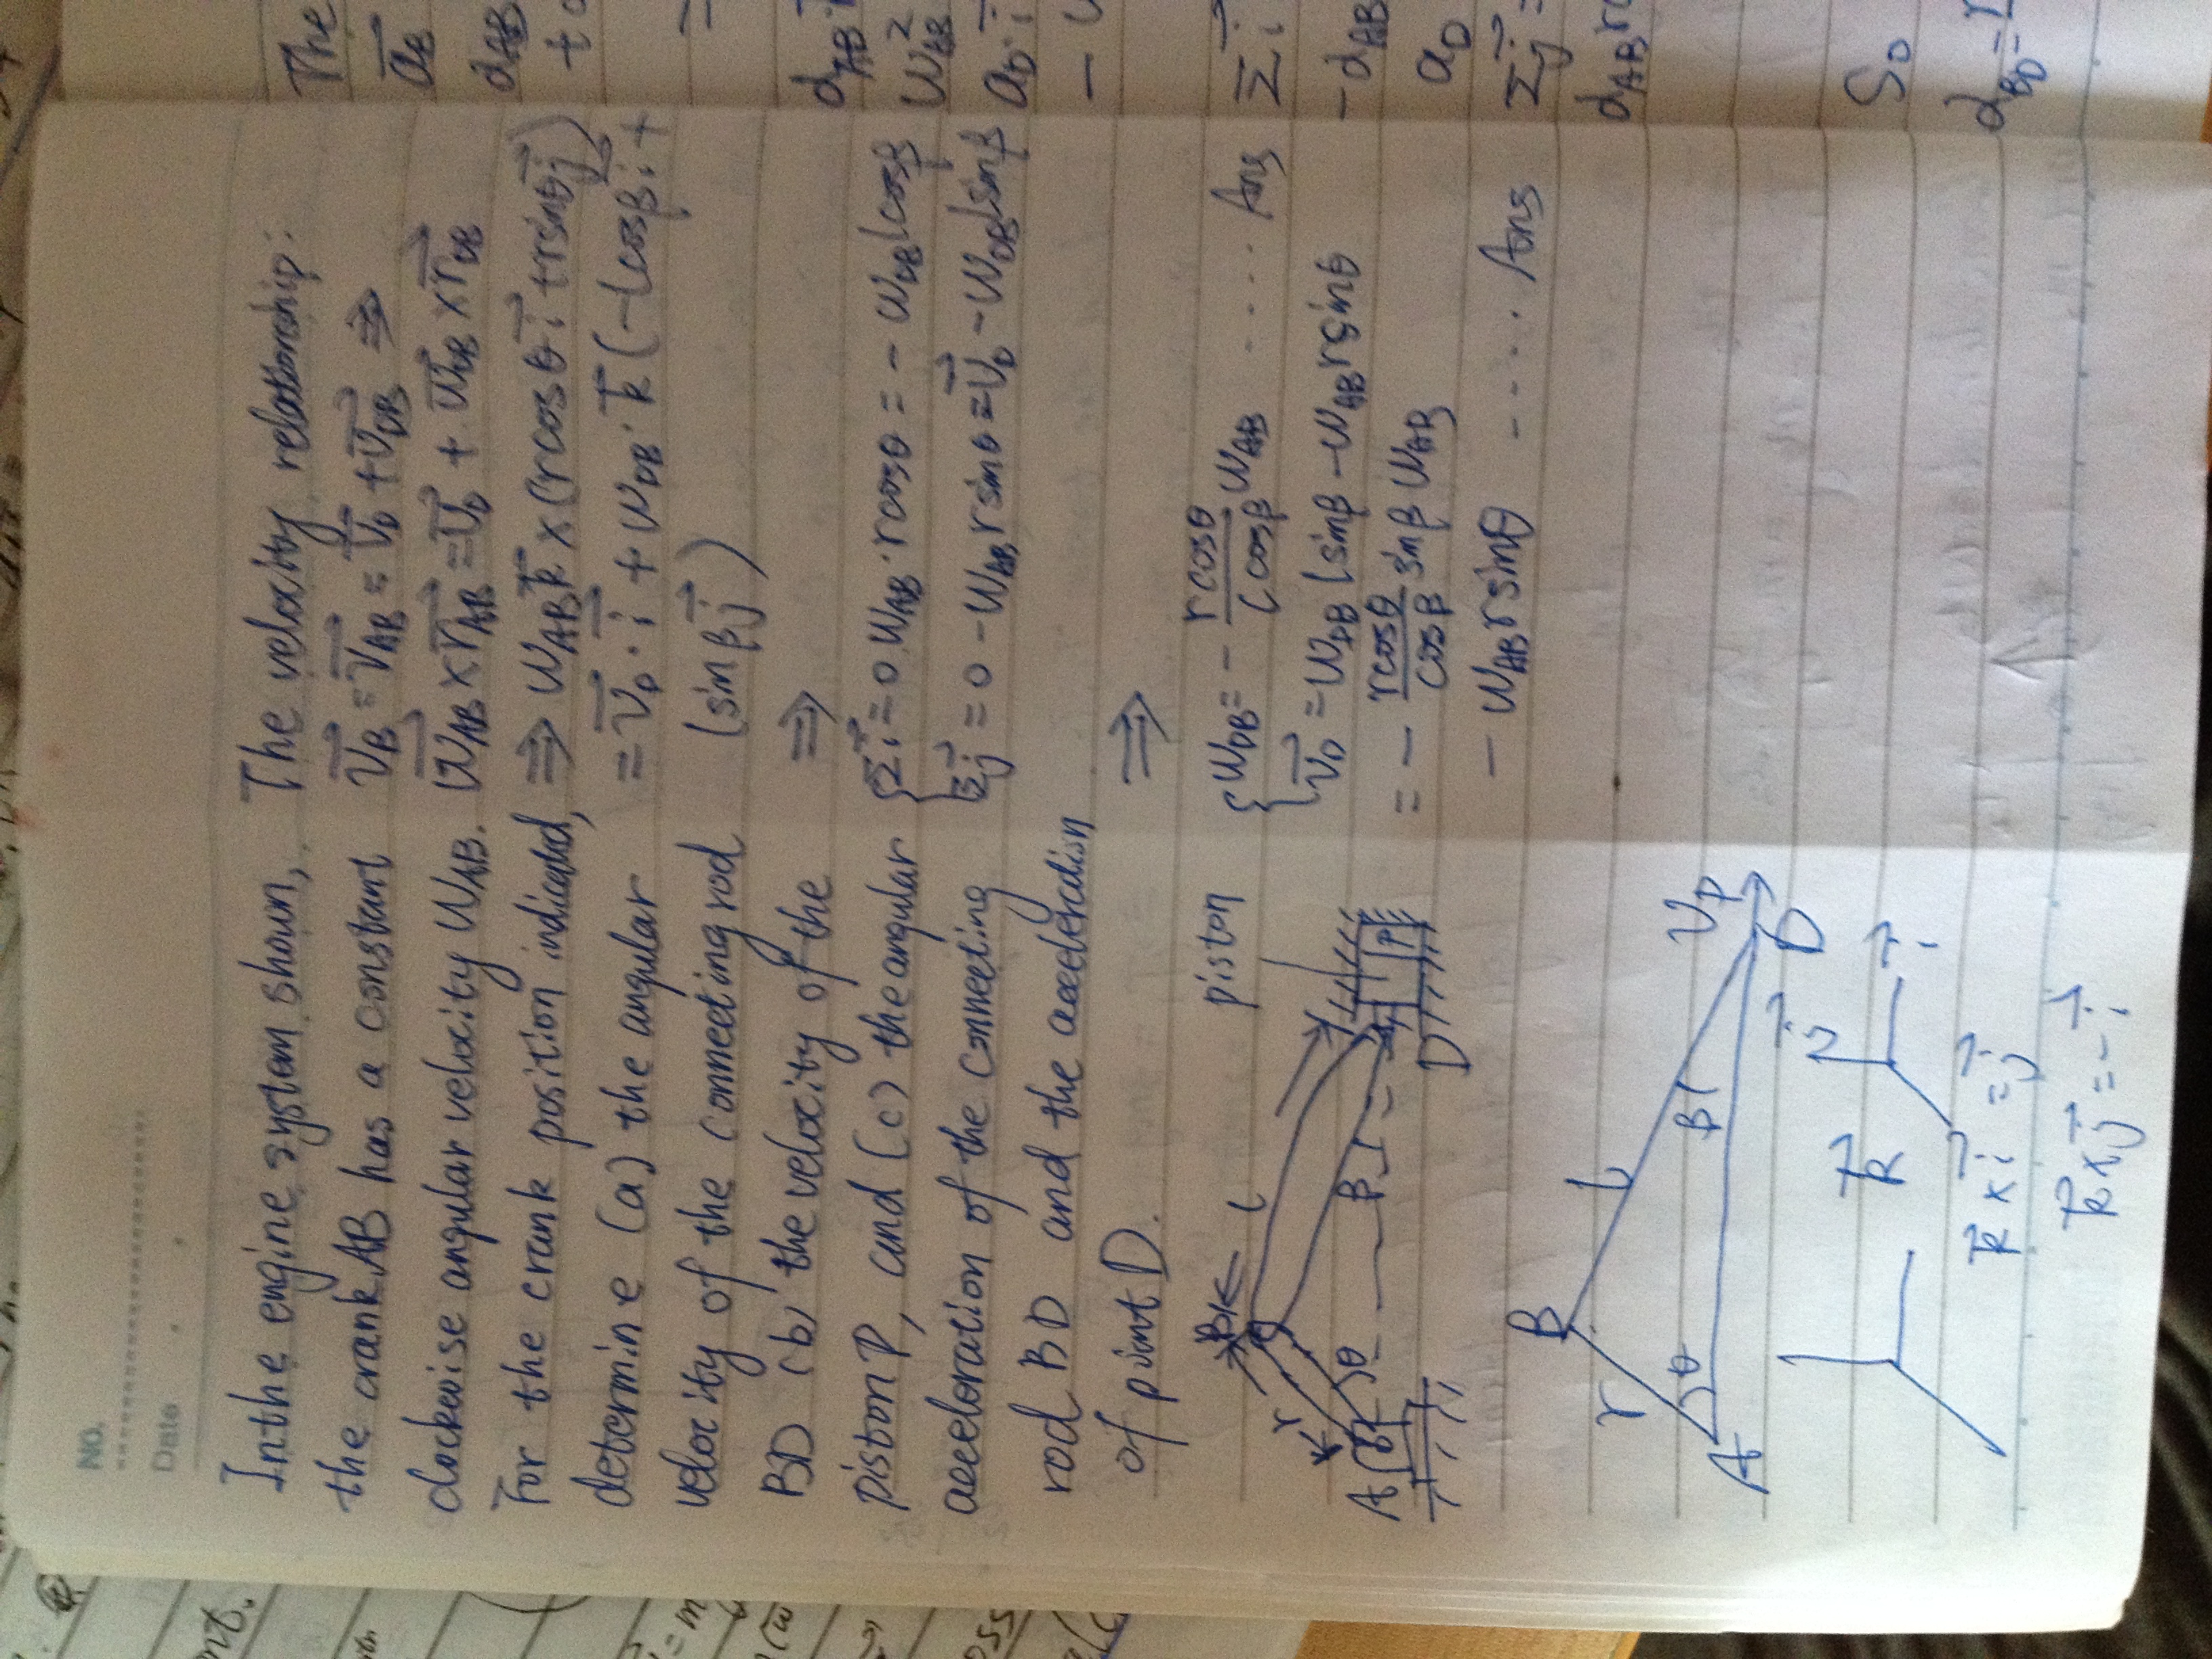 NO.
Date
In the engine system shown,
the crank AB has a constant
clockwise angular velocity WAB.
For the crank position indicated,
determine (a) the angular
velocity of the connecting rod
BD (b) the velocity of the
piston P, and (c) the angular
acceleration of the connecting
rod BD and the acceleration
of point D.
B l piston
r
A θ β P
D
B
r l
θ β V_P
A D
k⃗ j⃗
i⃗
k⃗ × i⃗ = j⃗
k⃗ × j⃗ = -i⃗
The velocity relationship:
V⃗_B = V⃗_AB = V⃗_D + V⃗_DB ⇒
W⃗_AB × r⃗_AB = V⃗_D + W⃗_DB × r⃗_DB
⇒ W_AB k⃗ × (r cosθ i⃗ + r sinθ j⃗)
= V⃗_D · i⃗ + W_DB · k⃗ (-l cosβ i⃗ +
l sinβ j⃗)
⇒
Σi⃗ = 0 W_AB · r cosθ = - W_DB l cosβ
Σj⃗ = 0 - W_AB r sinθ = V⃗_D - W_DB l sinβ
⇒
W_DB = - r cosθ / l cosβ W_AB .... Ans
V⃗_D = W_DB l sinβ - W_AB r sinθ
= - r cosθ / cosβ sinβ W_AB
- W_AB r sinθ .... Ans
The
d_AB
W²_AB
a_D · i⃗
Σi⃗
-d_AB
a_D
Σj⃗ =
d_AB r
So
d_BD =
nt.